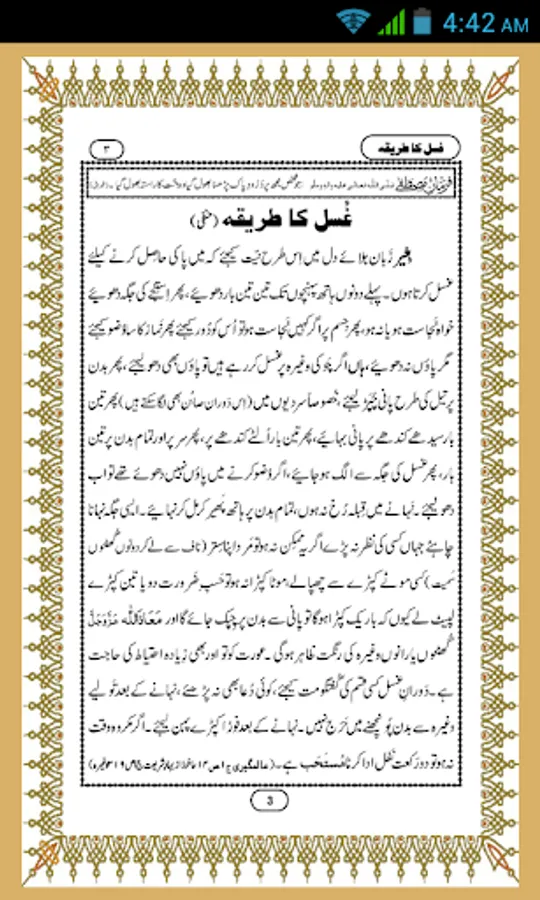 4:42 AM
غسل کا طریقہ
۳
فرمانِ مصطفٰے صلی اللہ تعالیٰ علیہ والہ وسلم جو شخص مجھ پر دُرُودِ پاک پڑھنا بھول گیا وہ جنت کا راستہ بھول گیا۔ (طبرانی)
غُسل کا طریقہ (حنفی)
بغیر زَبان ہلائے دل میں اِس طرح نیّت کیجئے کہ میں پاکی حاصل کرنے کیلئے
غسل کرتا ہوں۔ پہلے دونوں ہاتھ پہنچوں تک تین تین بار دھوئیے، پھر اِستنجے کی جگہ دھوئیے
خواہ نَجاست ہو یا نہ ہو، پھر جسم پر اگر کہیں نَجاست ہو تو اُس کو دُور کیجئے پھر نَماز کا سا وُضو کیجئے
مگر پاؤں نہ دھوئیے، ہاں اگر چَوکی وغیرہ پر غسل کر رہے ہیں تو پاؤں بھی دھو لیجئے، پھر بدن
پر تیل کی طرح پانی چُپَڑ لیجئے، خُصوصاً سردیوں میں (اِس دَوران صابُن بھی لگا سکتے ہیں) پھر تین
بار سیدھے کندھے پر پانی بہائیے، پھر تین بار اُلٹے کندھے پر، پھر سر پر اور تمام بدن پر تین
بار، پھر غسل کی جگہ سے الگ ہو جائیے، اگر وُضو کرنے میں پاؤں نہیں دھوئے تھے تو اب
دھو لیجئے۔ نَہانے میں قِبلہ رُخ نہ ہوں، تمام بدن پر ہاتھ پَھیر کر مَل کر نہائیے۔ ایسی جگہ نہانا
چاہئے جہاں کسی کی نظر نہ پڑے اگر یہ مُمکِن نہ ہو تو مَرد اپنا سِتر (ناف سے لے کر دونوں گُھٹنوں
سَمیت) کسی موٹے کپڑے سے چھپا لے، موٹا کپڑا نہ ہو تو حَسبِ ضَرورت دو یا تین کپڑے
لپیٹ لے کیوں کہ باریک کپڑا ہوگا تو پانی سے بدن پر چپک جائے گا اور مَعَاذَاللّٰہ عَزَّوَجَلَّ
گُھٹنوں یا رانوں وغیرہ کی رنگت ظاہر ہوگی۔ عورت کو تو اور بھی زِیادہ احتیاط کی حاجت
ہے۔ دَورانِ غسل کسی قسم کی گُفتگو مت کیجئے، کوئی دُعا بھی نہ پڑھئے، نہانے کے بعد تولیے
وغیرہ سے بدن پُونچھنے میں حَرَج نہیں۔ نہانے کے بعد فوراً کپڑے پہن لیجئے۔ اگر مکروہ وقت
نہ ہو تو دو رَکعت نَفل ادا کرنا مُستَحَب ہے۔ (عالمگیری ج۱ ص۱۴ ماخوذ از بہار شریعت ج۱ ص۳۱۹ وغیرہ)
3